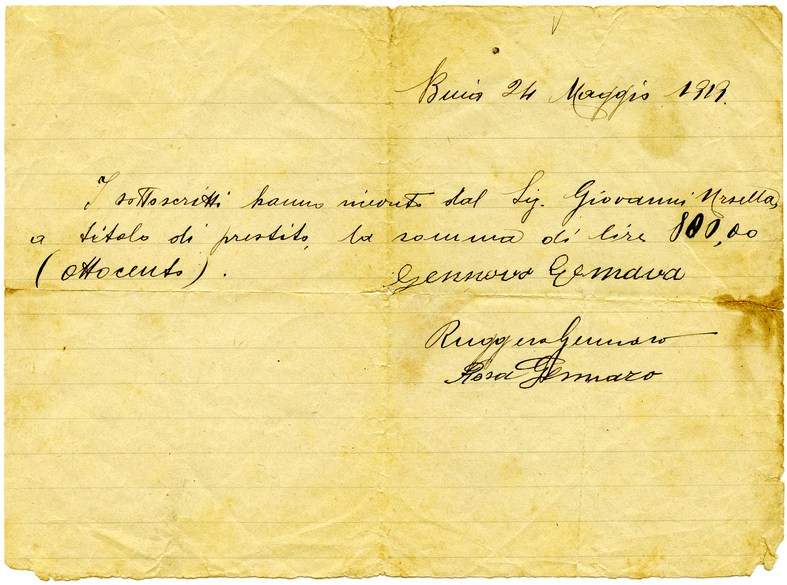 Buia 24 Maggio 1919.
I sottoscritti hanno ricevuto dal Sig. Giovanni Ursella,
a titolo di prestito, la somma di lire 800,00
(ottocento).
Gennaro
Ruggero Gennaro
Rosa Gennaro